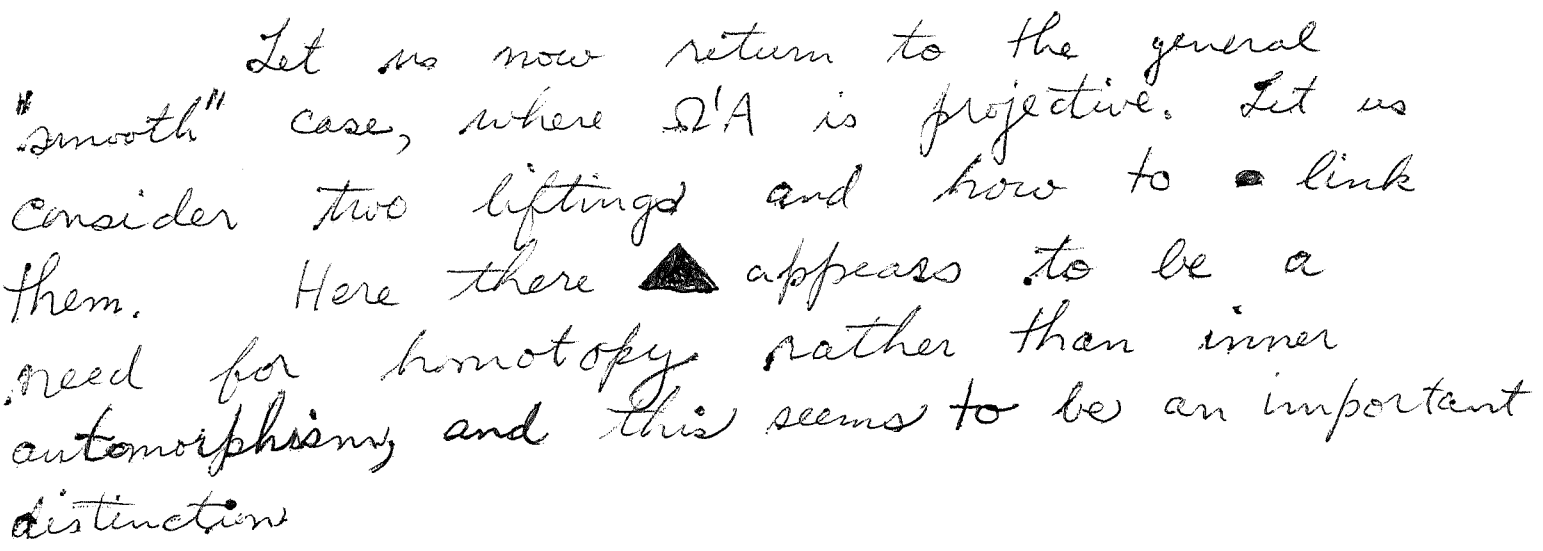 Let us now return to the general
"smooth" case, where Ω¹A is projective. Let us
consider two liftings and how to link
them. Here there appears to be a
need for homotopy rather than inner
automorphism, and this seems to be an important
distinction